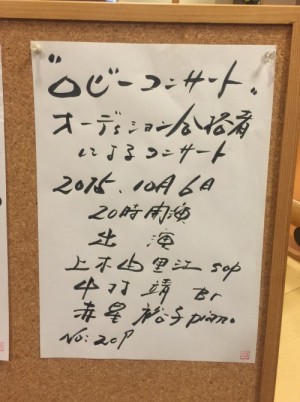 "ロビーコンサート"
オーディション合格者
によるコンサート
2015.10月6日
20時開演
出演
上木由里江 sop
牛村 靖 Br
赤星裕子 piano.
No:209